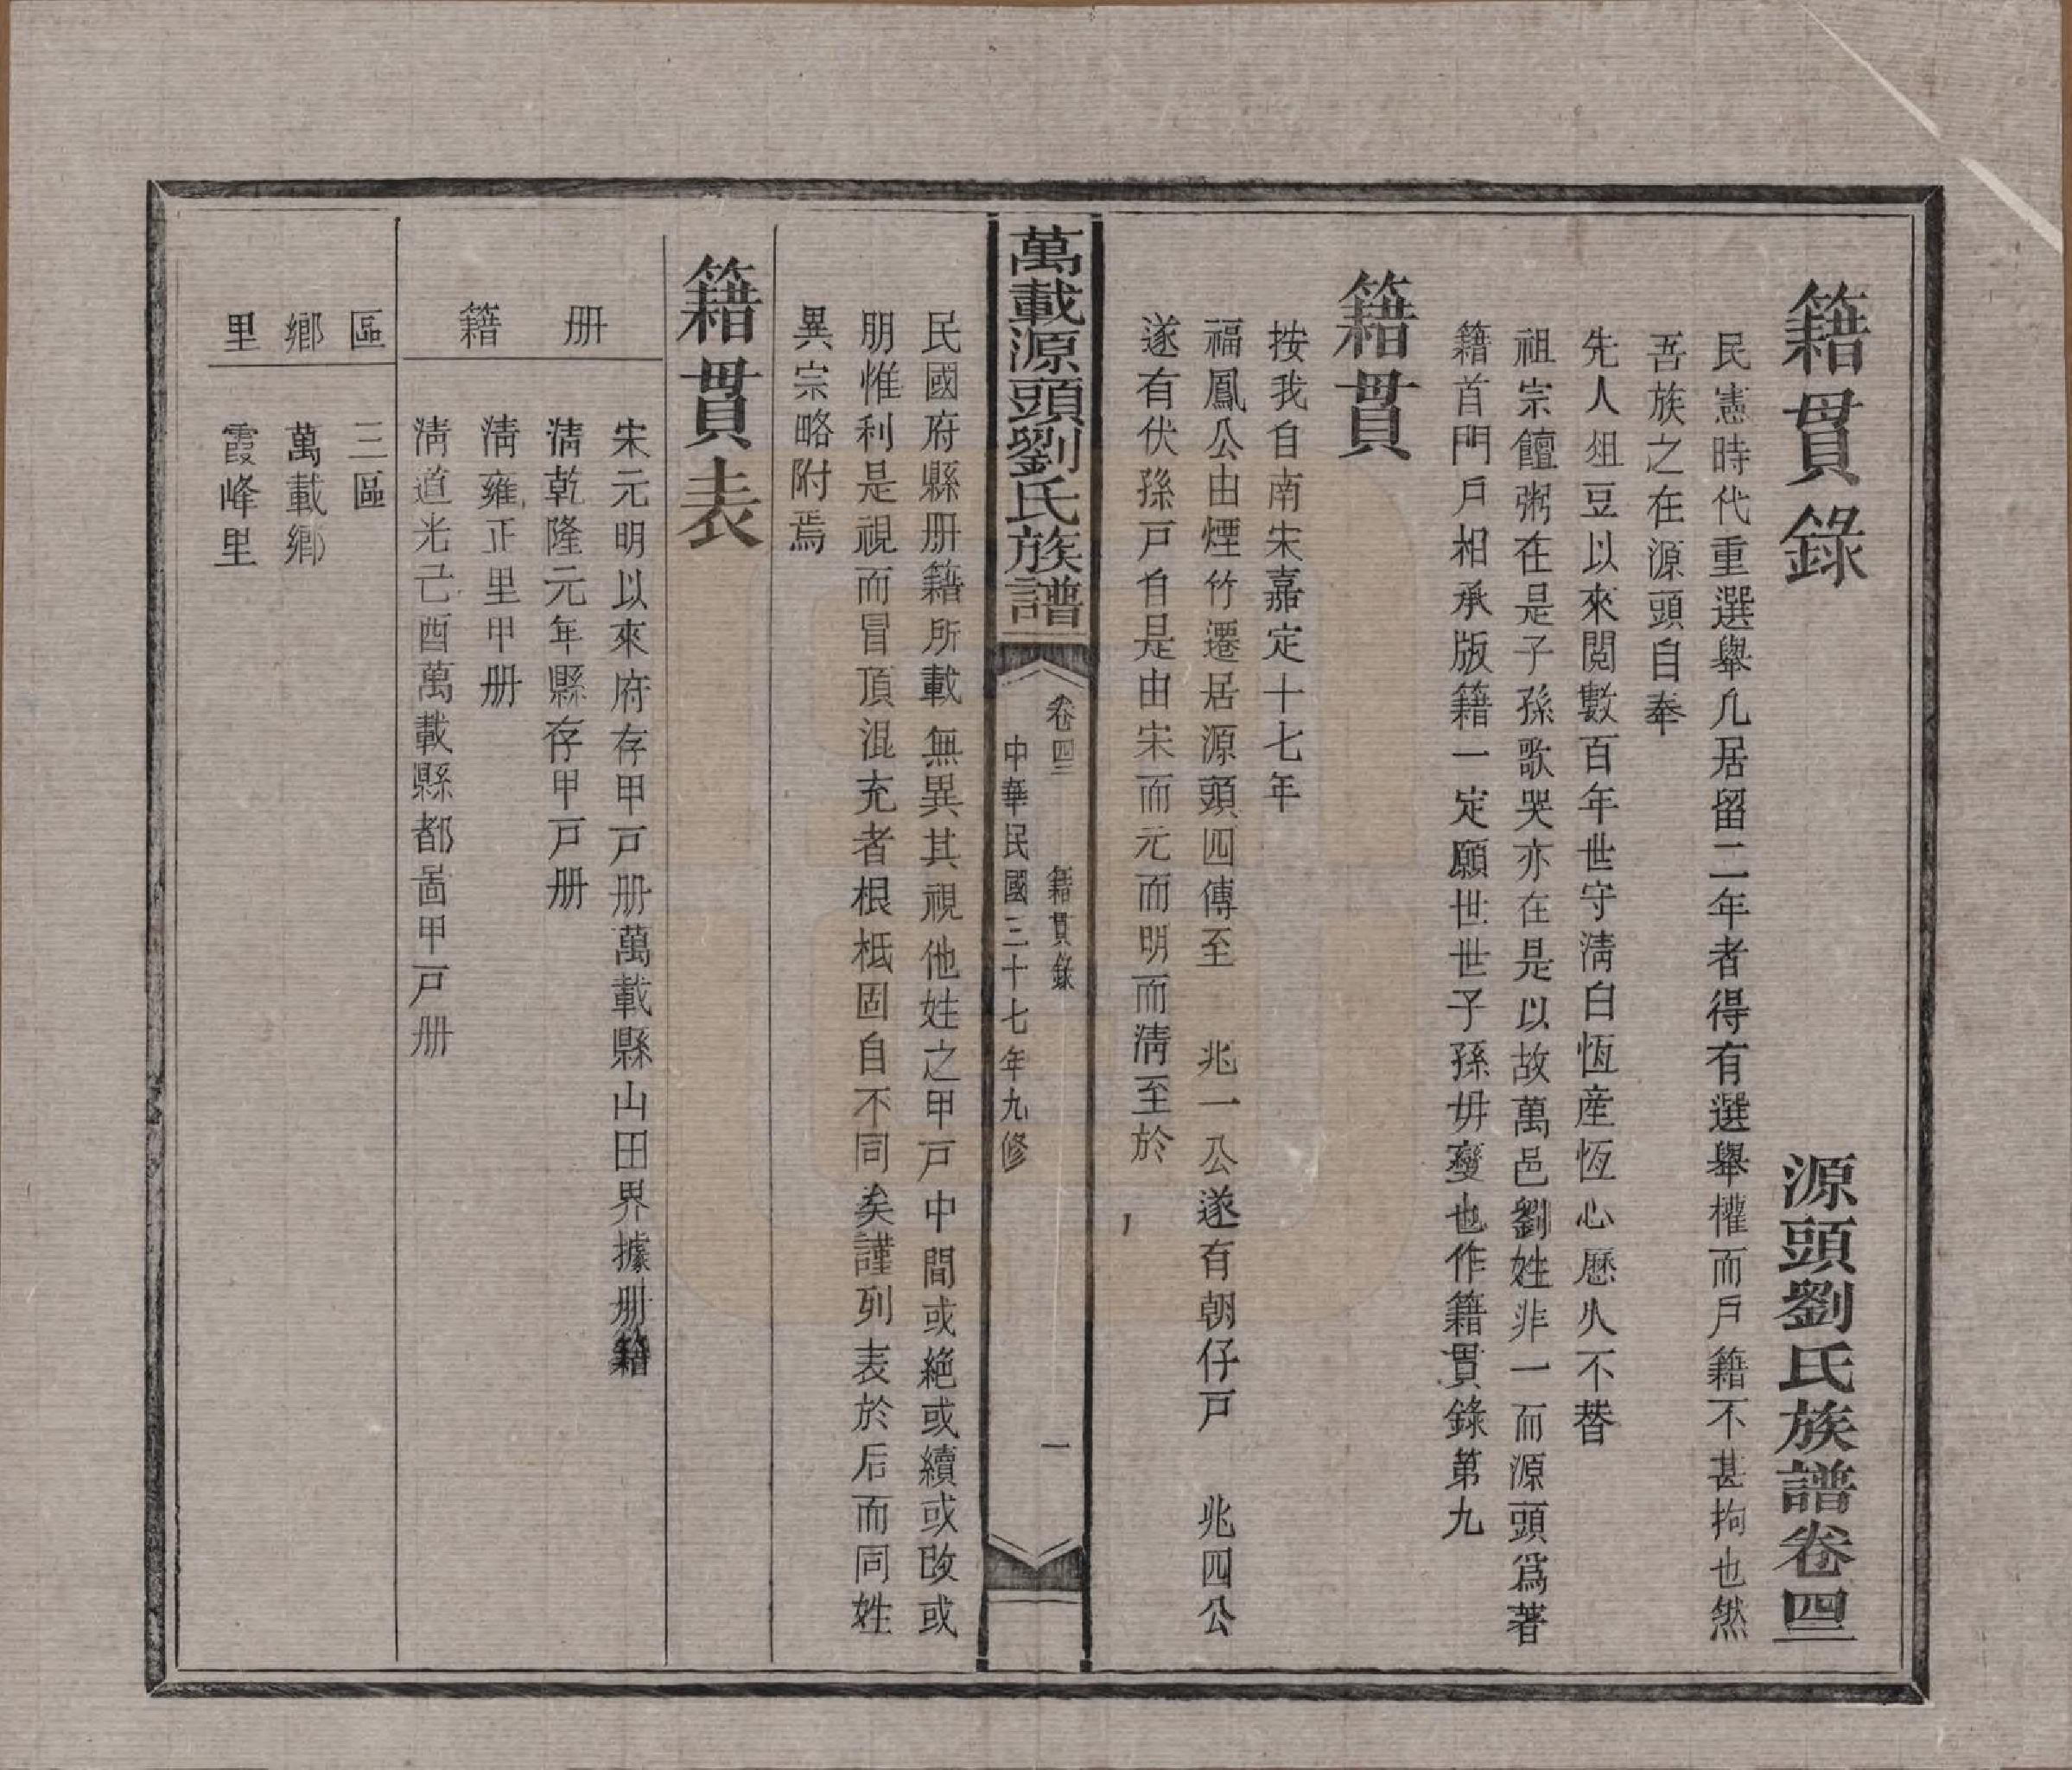 籍貫錄
源頭劉氏族譜卷四
民憲時代重選舉几居留二年者得有選舉權而戶籍不甚拘也然
吾族之在源頭自奉
先人俎豆以來閱數百年世守淸白恆産恆心歷久不替
祖宗饘粥在是子孫歌哭亦在是以故萬邑劉姓非一而源頭爲著
籍首門戶相承版籍一定願世世子孫毋變也作籍貫錄第九
籍貫
按我自南宋嘉定十七年
福鳳公由煙竹遷居源頭四傳至 兆一公遂有朝仔戶 兆四公
遂有伏孫戶自是由宋而元而明而淸至於
萬載源頭劉氏族譜
卷四 籍貫錄 一
中華民國三十七年九修
民國府縣册籍所載無異其視他姓之甲戶中間或絕或續或改或
朋惟利是視而冒頂混充者根柢固自不同矣謹列表於后而同姓
異宗略附焉
籍貫表
册籍
宋元明以來府存甲戶册萬載縣山田界據册籍
淸乾隆元年縣存甲戶册
淸雍正里甲册
淸道光己酉萬載縣都啚甲戶册
區 三區
鄉 萬載鄉
里 霞峰里